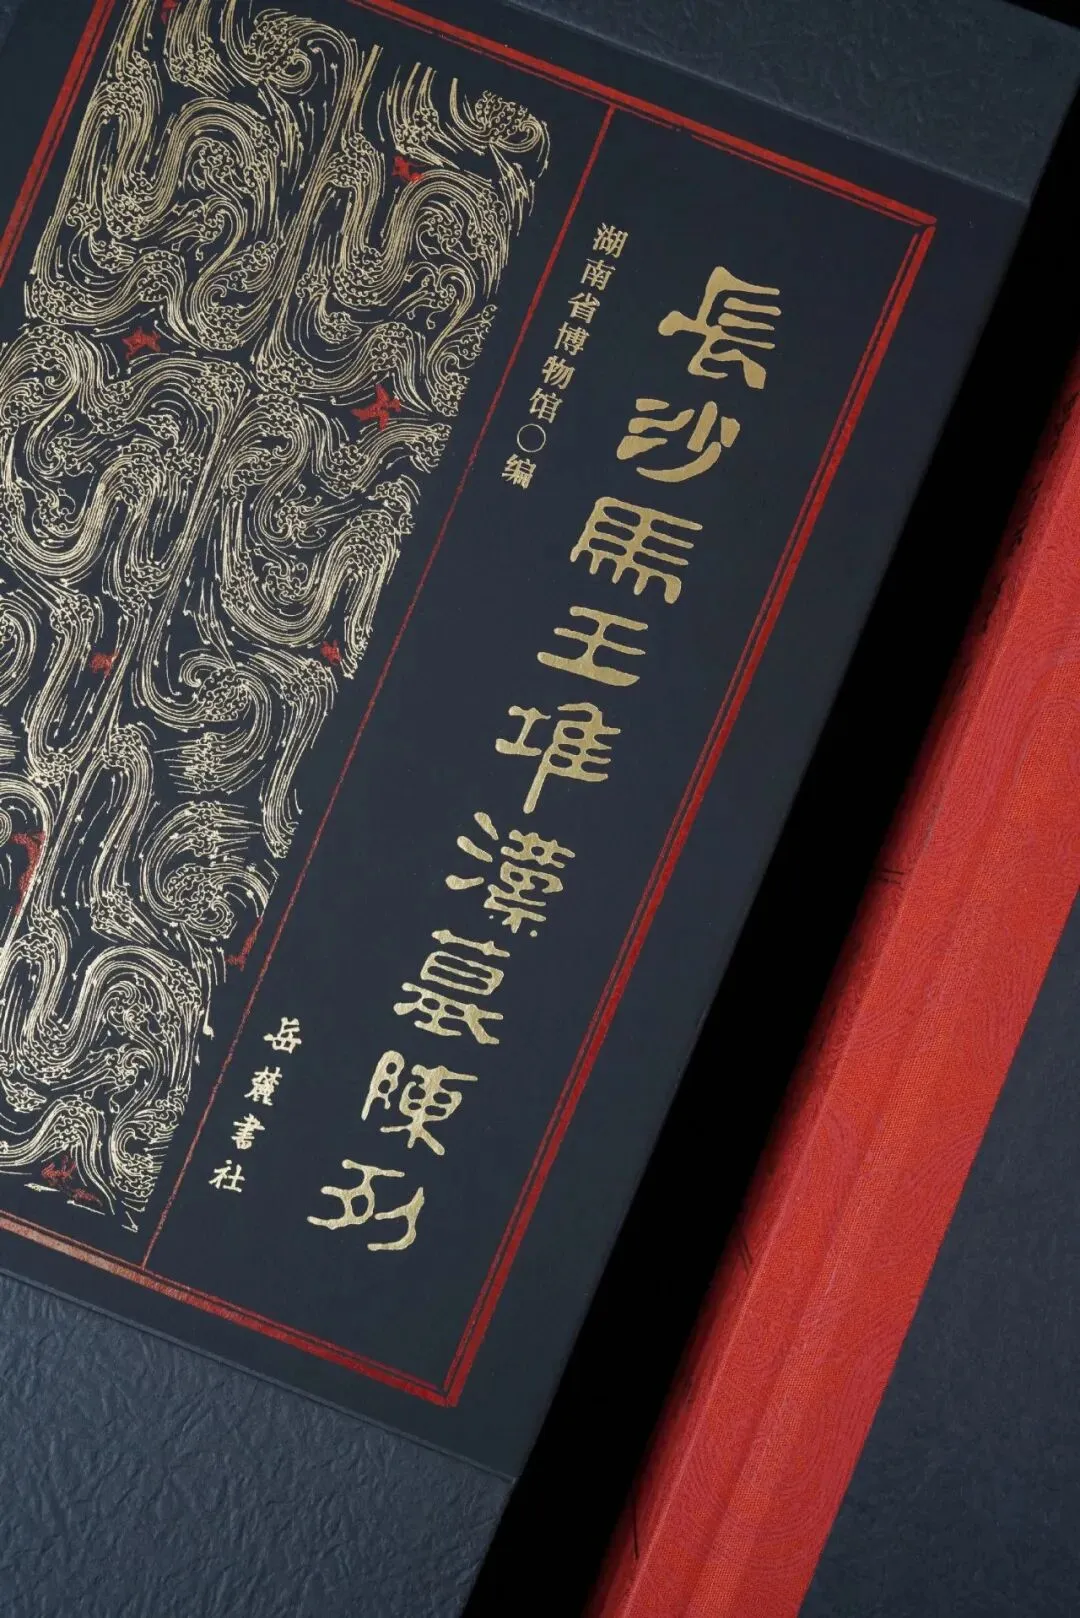 長沙馬王堆漢墓陳列
湖南省博物馆〇编
岳麓書社